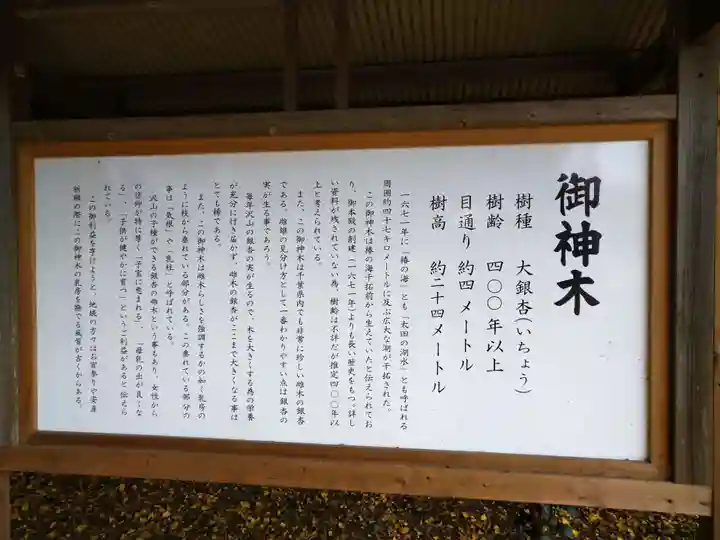 御神木
樹種　大銀杏(いちょう)
樹齢　四〇〇年以上
目通り　約四メートル
樹高　約二十四メートル
一六七一年に「椿の海」とも「太田の湖水」とも呼ばれる
周囲約四十七キロメートルに及ぶ広大な湖が干拓された。
この御神木は椿の海干拓前から生えていたと伝えられてお
り、御本殿の創建(一六七一年)よりも長い歴史をもつ。詳し
い資料が残されていない為、樹齢は不詳だが推定四〇〇年以
上と考えられている。
また、この御神木は千葉県内でも非常に珍しい雌木の銀杏
である。雌雄の見分け方として一番わかりやすい点は銀杏の
実が生る事であろう。
毎年沢山の銀杏の実が生るので、木を大きくする為の栄養
が充分に行き届かず、雌木の銀杏がここまで大きくなる事は
とても稀である。
また、この御神木は雌木らしさを強調するかの如く乳房の
ように枝から垂れている部分がある。この垂れている部分の
事は「気根」や「乳柱」と呼ばれている。
沢山の子種ができる銀杏の雌木という事もあり、女性から
の信仰が特に厚く「子宝に恵まれる」「母乳の出が良くな
る」「子供が健やかに育つ」というご利益があると伝えら
れている。
この御利益を享けようと、地域の方々はお宮参りや安産
祈願の際にこの御神木の乳房を撫でる風習が古くからある。